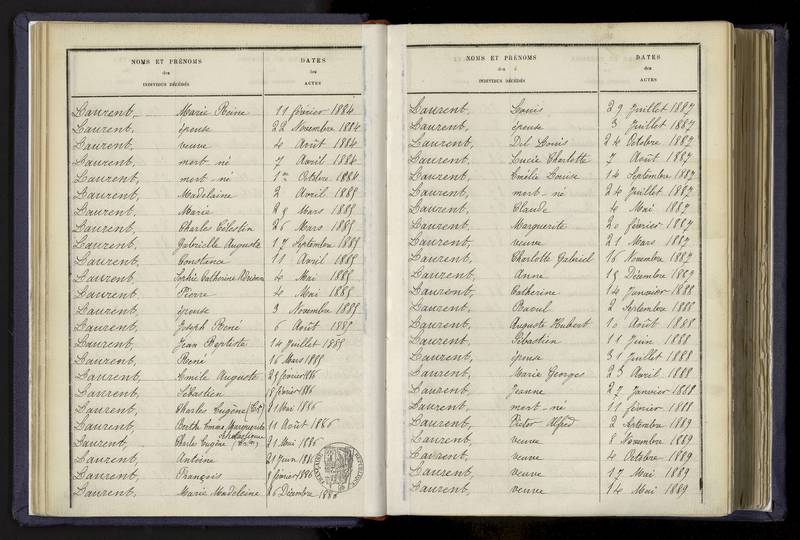 NOMS ET PRÉNOMS
des
INDIVIDUS DÉCÉDÉS
DATES
des
ACTES
Laurent, Marie Reine 11 février 1884
Laurent, épouse 22 Novembre 1884
Laurent, veuve 4 Août 1884
Laurent, mort né 7 Avril 1884
Laurent, mort né 1er Octobre 1884
Laurent, Madeleine 2 Avril 1885
Laurent, Marie 29 Mars 1885
Laurent, Charles Célestin 26 Mars 1885
Laurent, Gabrielle Auguste 17 Septembre 1885
Laurent, Constance 11 Avril 1885
Laurent, Sophie Catherine 4 Mai 1885
Laurent, Pierre 4 Mai 1885
Laurent, épouse 3 Novembre 1885
Laurent, Joseph René 6 Août 1885
Laurent, Jean Baptiste 14 Juillet 1885
Laurent, René 16 Mars 1885
Laurent, Emile Auguste 29 février 1886
Laurent, Sébastien 8 février 1886
Laurent, Charles Eugène 21 Mai 1886
Laurent, Berthe Emma Marguerite 11 Août 1886
Scholastique
Laurent, Charles Eugène 21 Mai 1886
Laurent, Antoine 21 Juin 1886
Laurent, François 1 février 1886
Laurent, Marie Madeleine 16 Décembre 1886
NOMS ET PRÉNOMS
des
INDIVIDUS DÉCÉDÉS
DATES
des
ACTES
Laurent, Louis 29 Juillet 1887
Laurent, épouse 3 Juillet 1887
Laurent, Del Louis 24 Octobre 1887
Laurent, Lucie Charlotte 7 Août 1887
Laurent, Emélie Louise 14 Septembre 1887
Laurent, mort né 24 Juillet 1887
Laurent, Claude 4 Mai 1887
Laurent, Marguerite 20 février 1887
Laurent, veuve 21 Mars 1887
Laurent, Charlotte Gabriel 16 Novembre 1887
Laurent, Anne 19 Décembre 1889
Laurent, Catherine 14 Janvier 1888
Laurent, Raoul 2 Septembre 1888
Laurent, Auguste Hubert 10 Août 1888
Laurent, Sébastien 11 Juin 1888
Laurent, épouse 31 Juillet 1888
Laurent, Marie Georges 23 Avril 1888
Laurent, Jeanne 27 Janvier 1888
Laurent, mort né 11 février 1888
Laurent, Victor Alfred 2 Septembre 1889
Laurent, veuve 8 Novembre 1889
Laurent, veuve 4 Octobre 1889
Laurent, veuve 17 Mai 1889
Laurent, veuve 14 Mai 1889